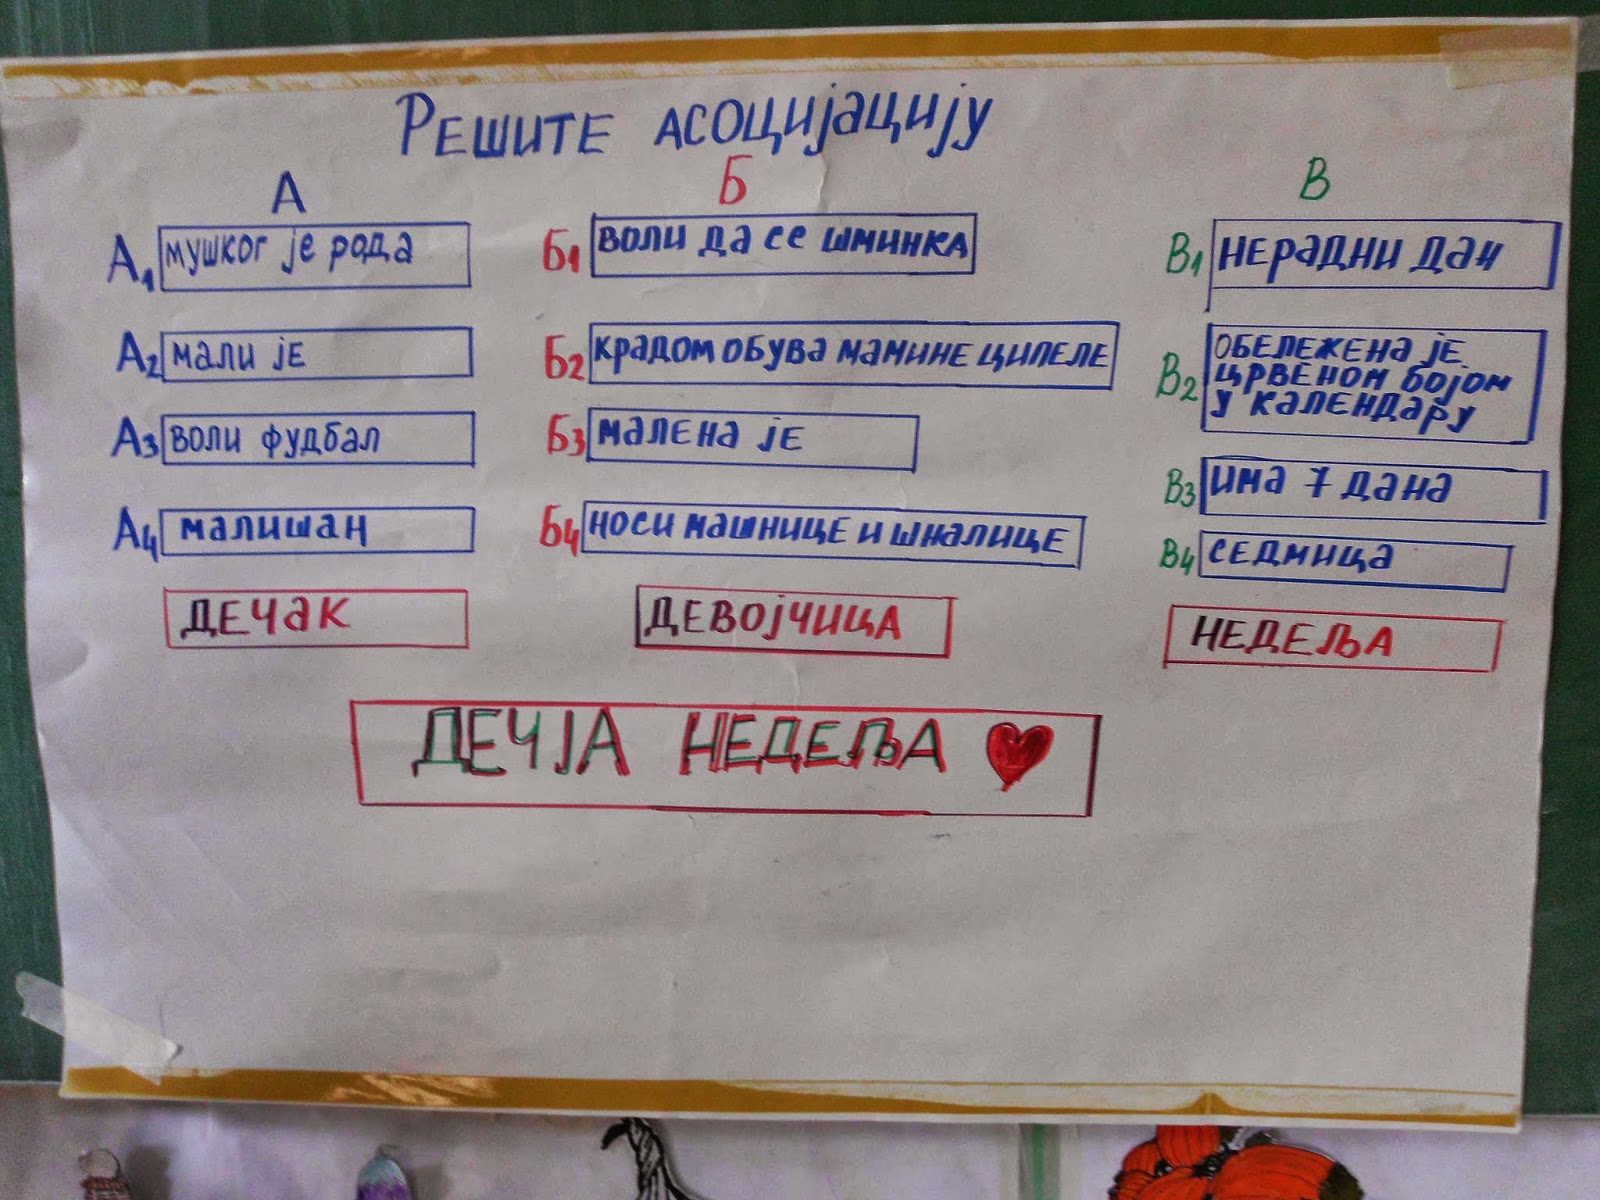 РЕШИТЕ АСОЦИЈАЦИЈУ
А Б В
А1 мушког је рода
А2 мали је
А3 воли фудбал
А4 малишан
ДЕЧАК
Б1 воли да се шминка
Б2 крадом обува мамине ципеле
Б3 малена је
Б4 носи машнице и шналице
ДЕВОЈЧИЦА
В1 нерадни дан
В2 обележена је
црвеном бојом
у календару
В3 има 7 дана
В4 седмица
НЕДЕЉА
ДЕЧЈА НЕДЕЉА